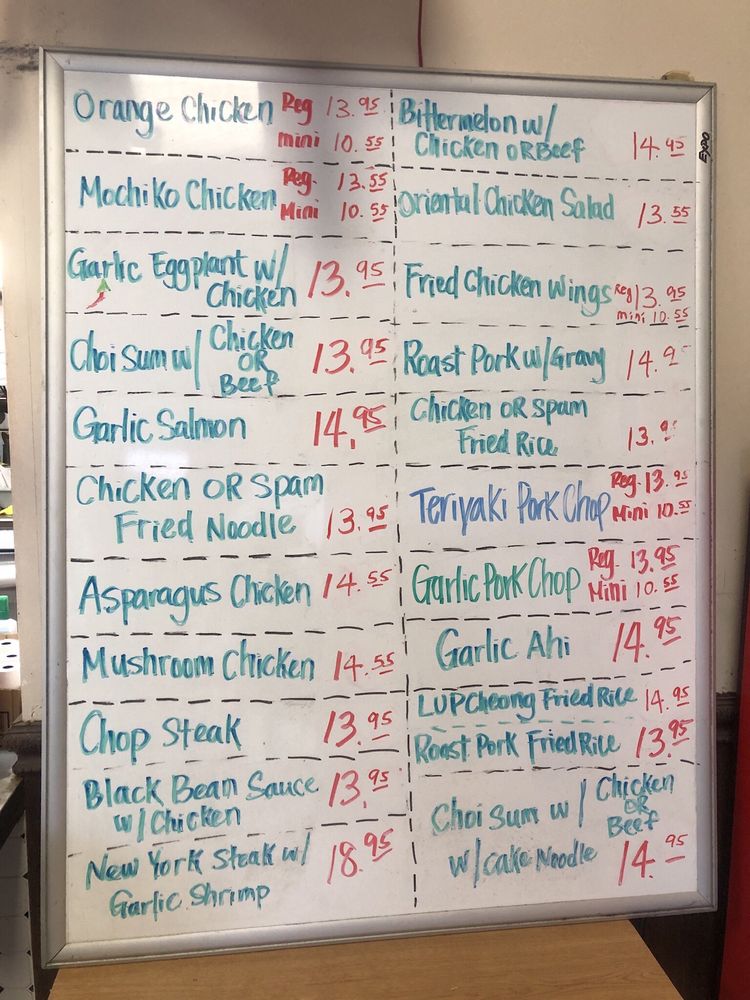 Orange Chicken Reg 13.95
mini 10.55
Mochiko Chicken Reg. 13.55
Mini 10.55
Garlic Eggplant w/
Chicken 13.95
Choi Sum w/ Chicken
OR
Beef 13.95
Garlic Salmon 14.95
Chicken OR Spam
Fried Noodle 13.95
Asparagus Chicken 14.55
Mushroom Chicken 14.55
Chop Steak 13.95
Black Bean Sauce
w/Chicken 13.95
New York Steak w/
Garlic Shrimp 18.95
Bittermelon w/
Chicken OR Beef 14.95
Oriental Chicken Salad 13.55
Fried Chicken Wings Reg 13.95
mini 10.55
Roast Pork w/Gravy 14.9
Chicken OR Spam
Fried Rice 13.
Teriyaki Pork Chop Reg. 13.95
Mini 10.55
Garlic Pork Chop Reg. 13.95
Mini 10.55
Garlic Ahi 14.95
LUPCheong Fried Rice 14.95
Roast Pork Fried Rice 13.95
Choi Sum w/ Chicken
OR
Beef
w/cake Noodle 14.95
EXPO